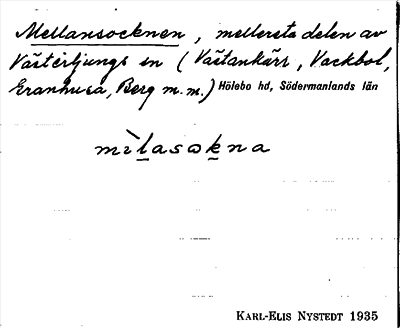 Mellansocknen, mellersta delen av
Västerljungs sn (Västankärr, Vackbol,
Granhusa, Berg m.m.) Hölebo hd, Södermanlands län
mìlasɷkna
KARL-ELIS NYSTEDT 1935